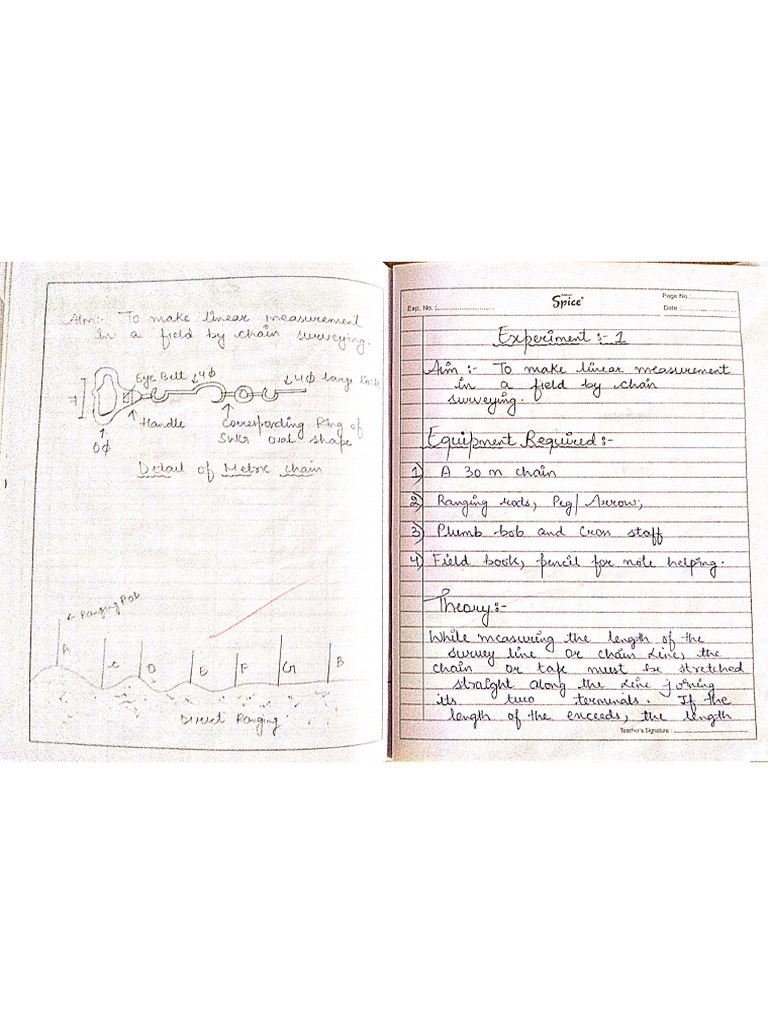 Aim:- To make linear measurement
in a field by chain surveying.
Eye Bolt 4ϕ 4ϕ large
Handle Corresponding Ring of
oval shape
Detail of Metric chain
← Ranging Rod
A C D E F G B
Direct Ranging
Spice
Page No.:
Exp. No. :
Date :
Experiment :- 1
Aim :- To make linear measurement
in a field by chain
surveying.
Equipment Required:-
1) A 30 m chain
2) Ranging rods, Peg/Arrow,
3) Plumb bob and Cross staff
4) Field book, pencil for note helping.
Theory:-
While measuring the length of the
survey line or chain line, the
chain or tape must be stretched
straight along the line joining
its two terminals. If the
length of the exceeds, the length
Teacher's Signature :